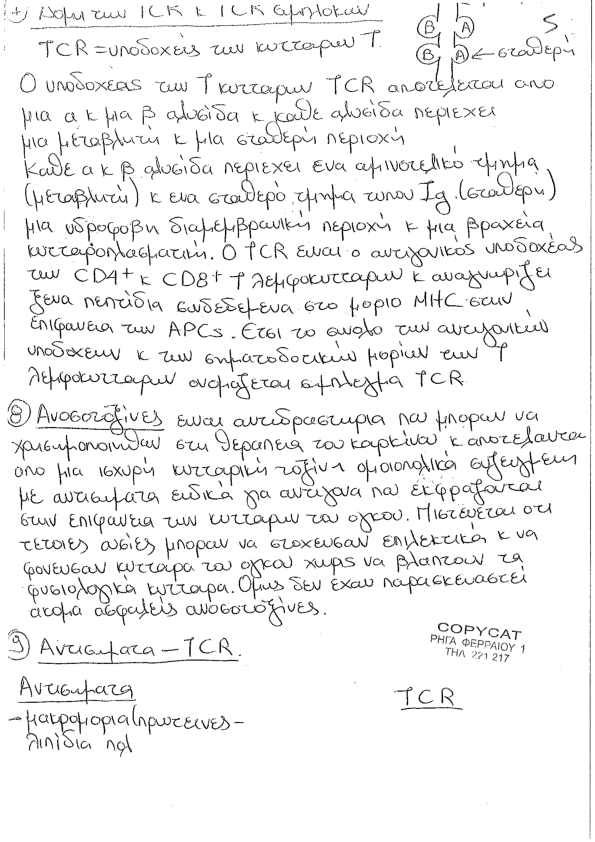 7) Δομη των TCR κ TCR συμπλοκων
5
Β Α
Β Α ← σταθερή
TCR = υποδοχείς των κυττάρων Τ.
Ο υποδοχέας των Τ κυτταρων TCR αποτελείται απο
μια α κ μια β αλυσίδα κ κάθε αλυσίδα περιεχει
μια μεταβλητή κ μια σταθερή περιοχή
Καθε α κ β αλυσίδα περιεχει ενα αμινοτελικό τμημα
(μεταβλητή) κ ενα σταθερό τμημα τυπου Ig. (σταθερη)
μια υδροφοβη διαμεμβρανική περιοχή κ μια βραχεία
κυτταροπλασματική. Ο TCR ειναι ο αντιγονικός υποδοχέας
των CD4+ κ CD8+ Τ λεμφοκυτταρων κ αναγνωριζει
ξενα πεπτίδια συνδεδεμενα στο μοριο MHC στην
επιφανεια των APCs. Ετσι το συνολο των αντιγονικών
υποδοχεων κ των σηματοδοτικών μορίων των Τ
λεμφοκυτταρων ονομάζεται συμπλεγμα TCR
8) Ανοσοτοξίνες ειναι αντιδραστηρια που μπορουν να
χρησιμοποιηθουν στη θεραπεια του καρκίνου κ αποτελουνται
απο μια ισχυρή κυτταρική τοξίνη ομοιοπολικά συζευγμενη
με αντισωματα ειδικά για αντιγονα που εκφράζονται
στην επιφανεια των κυτταρων του ογκου. Πιστευεται οτι
τετοιες ουσίες μπορουν να στοχευσουν επιλεκτικά κ να
φονευσουν κυτταρα του ογκου χωρις να βλαπτουν τα
φυσιολογικά κυτταρα. Ομως δεν εχουν παρασκευαστεί
ακομα ασφαλείς ανοσοτοξίνες.
9) Αντισωματα – TCR.
COPYCAT
ΡΗΓΑ ΦΕΡΡΑΙΟΥ 1
ΤΗΛ 221 217
Αντισωματα TCR
- μακρομορια (πρωτεινες -
λιπίδια πολ